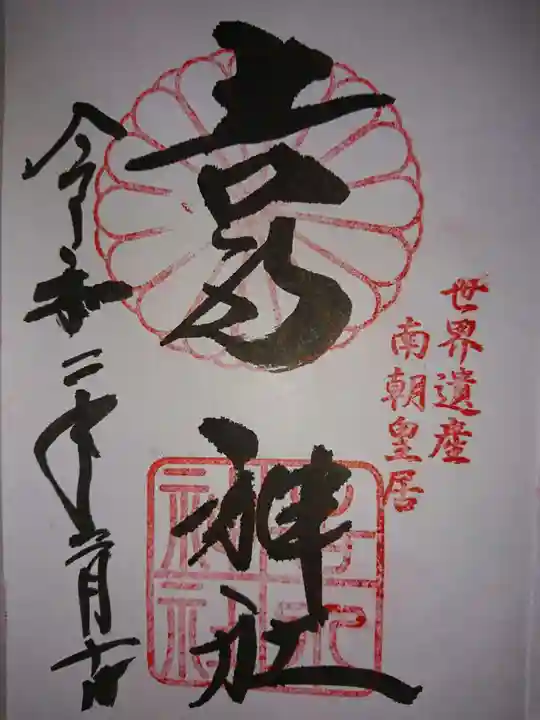 世界遺産
南朝皇居
吉水
神社
令和二年 月吉
吉水
神社